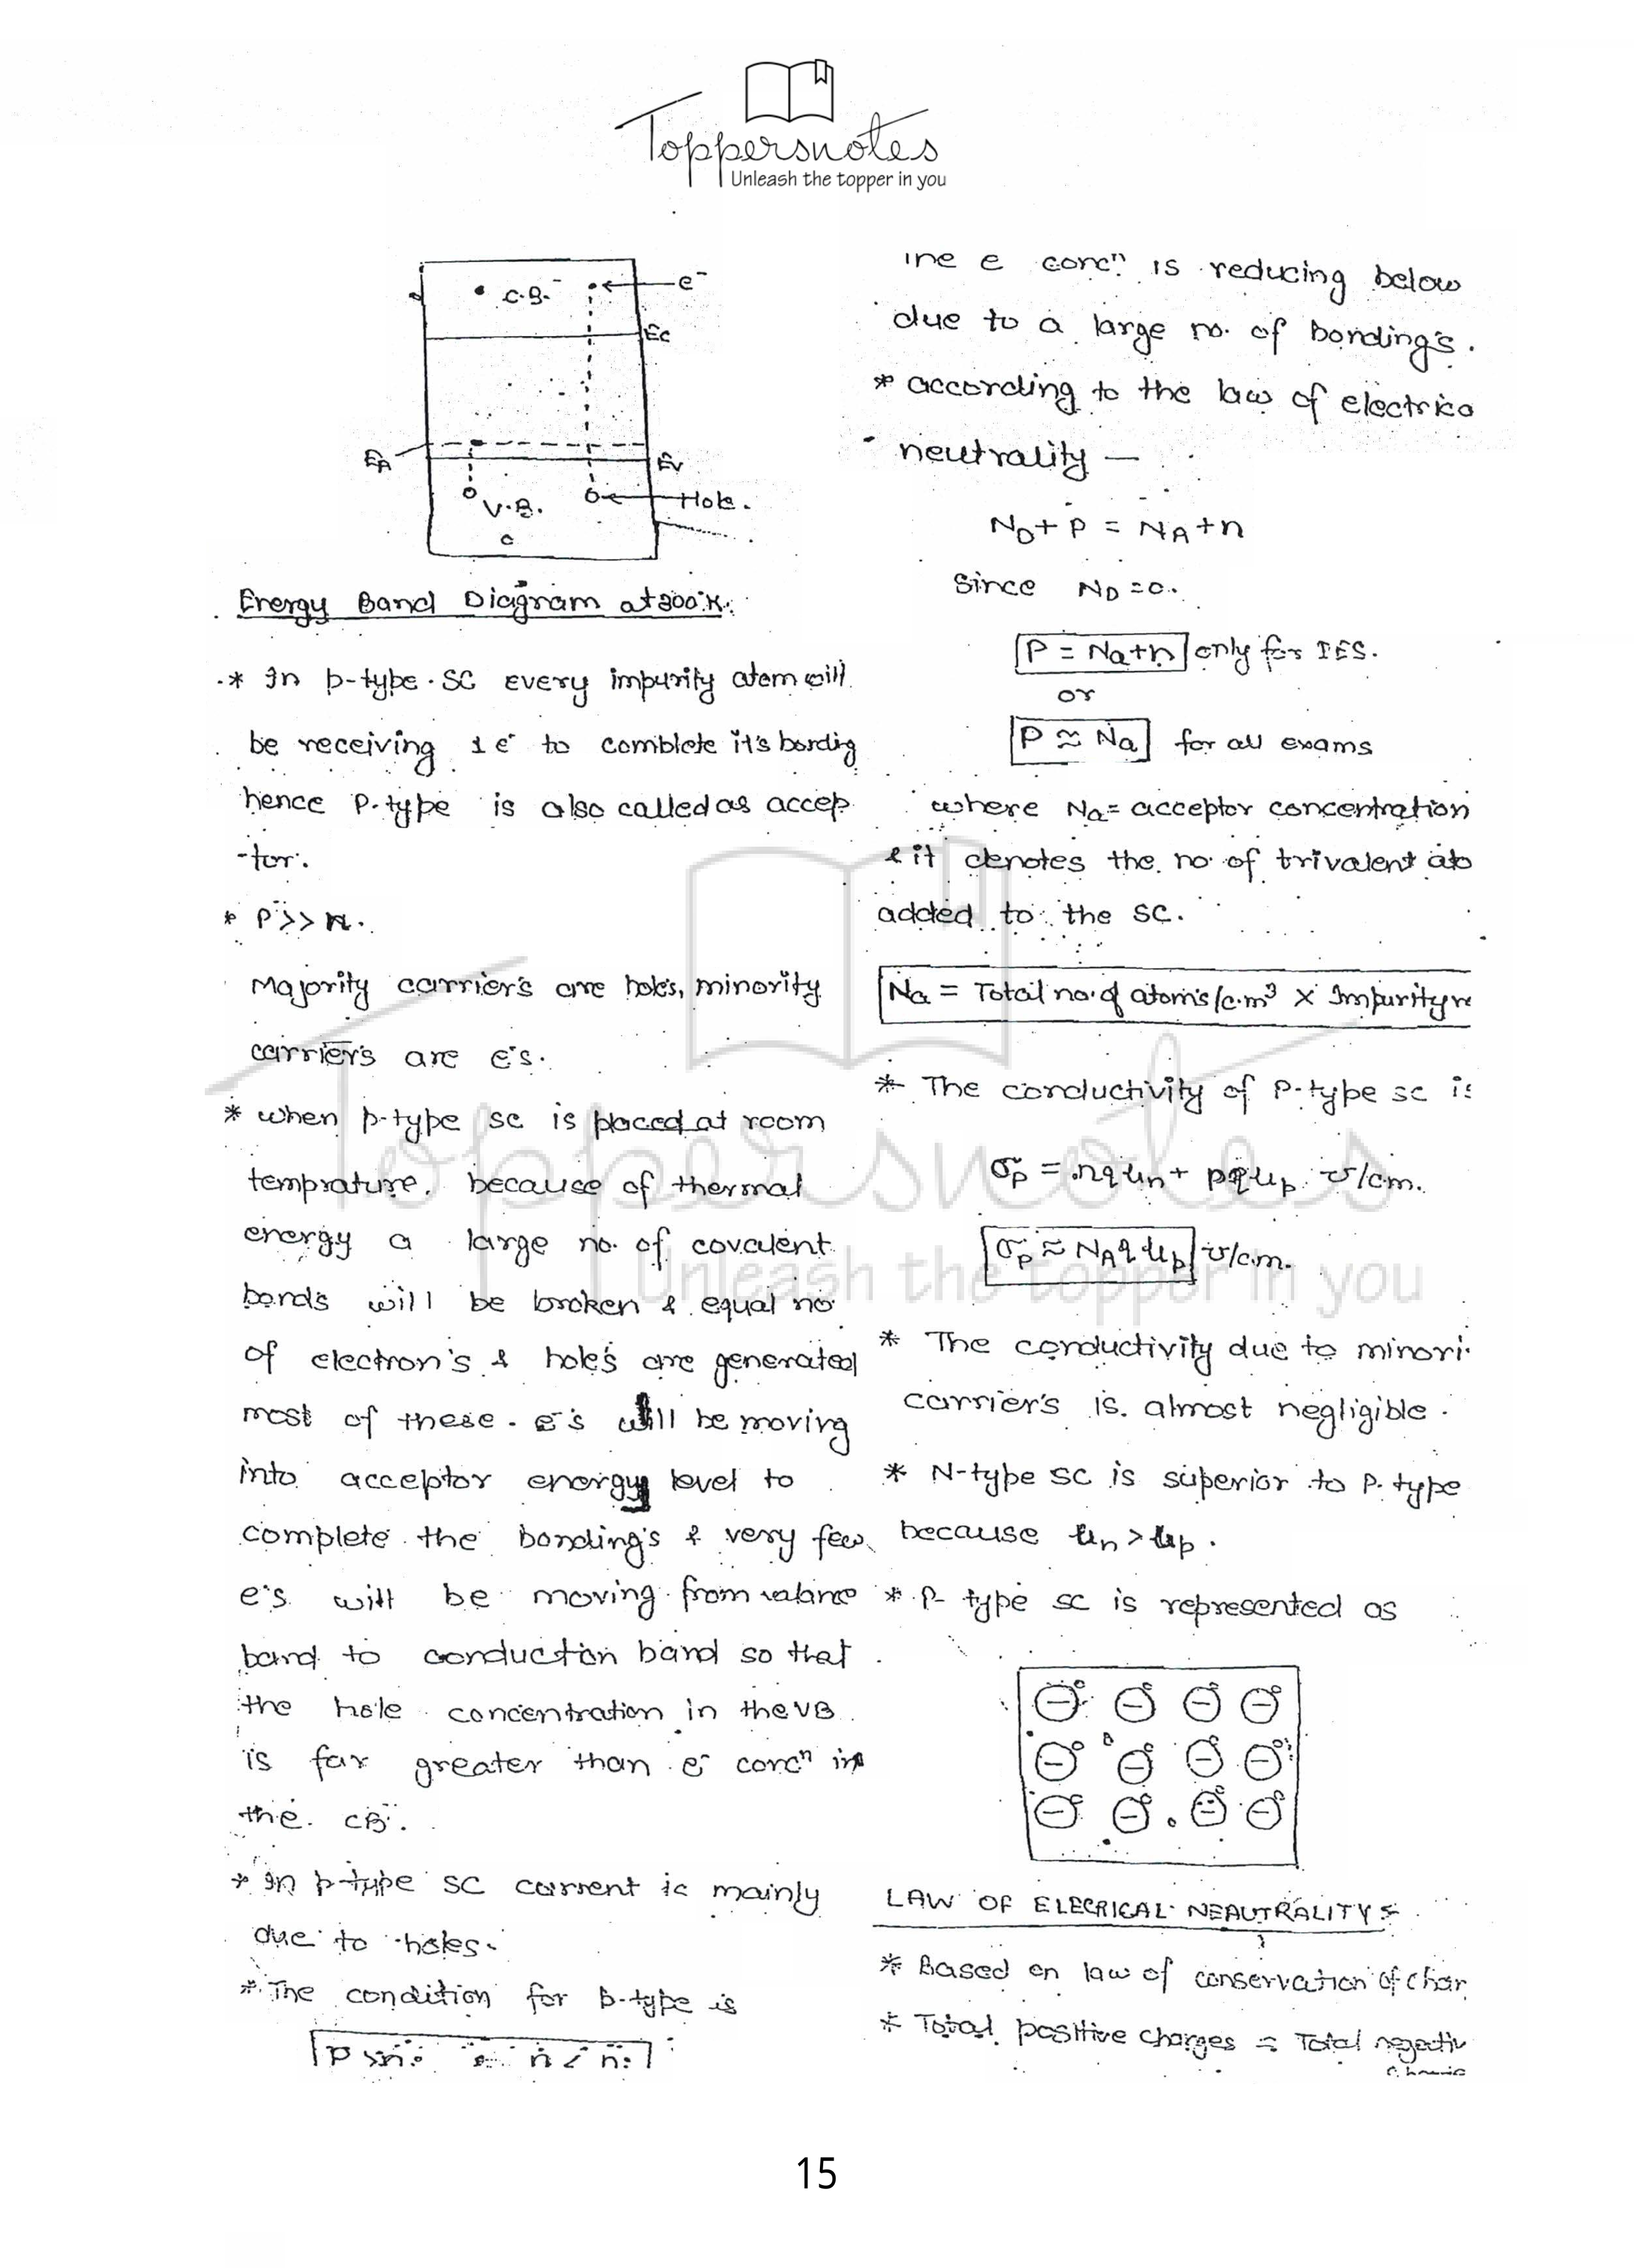 Toppersnotes
Unleash the topper in you
C.B.
e⁻
Ec
EA
Ev
V.B.
Hole.
Energy Band Diagram at 300°K.
* In p-type SC every impurity atom will
be receiving 1 e⁻ to comblete it's bordig
hence P-type is also called as accep
-tor.
* P>>n.
Majority carrier's are holes, minority
carrier's are e's.
* when p-type sc is placed at room
temprature, because of thermal
energy a large no. of covalent
bond's will be broken & equal no
of electron's & hole's are generated
most of these e⁻s will be moving
into acceptor energy level to
complete the bonding's & very few
e's will be moving from valance
band to conduction band so that
the hole concentration in the VB
is far greater than e⁻ concⁿ in
the CB.
* In p-type SC current is mainly
due to holes.
* The condition for p-type is
e concⁿ is reducing below
due to a large no. of bonding's.
* according to the law of electrica
neutrality —
ND + P = NA + n
Since ND = 0.
P = Na+n only for IES.
or
P ≈ Na for all exams
where Na = acceptor concentration
& it denotes the no. of trivalent ato
added to the SC.
Na = Total no. of atom's/c.m³ × Impurity r
* The conductivity of P-type sc is
σp = nqμn + pqμp ℧/cm.
σp ≈ NAqμp ℧/cm.
* The conductivity due to minori
carrier's is almost negligible.
* N-type SC is superior to P-type
because μn > μp.
* P-type sc is represented as
LAW OF ELECRICAL NEAUTRALITY :-
* Based on law of conservation of char
* Total positive charges = Total negativ
15